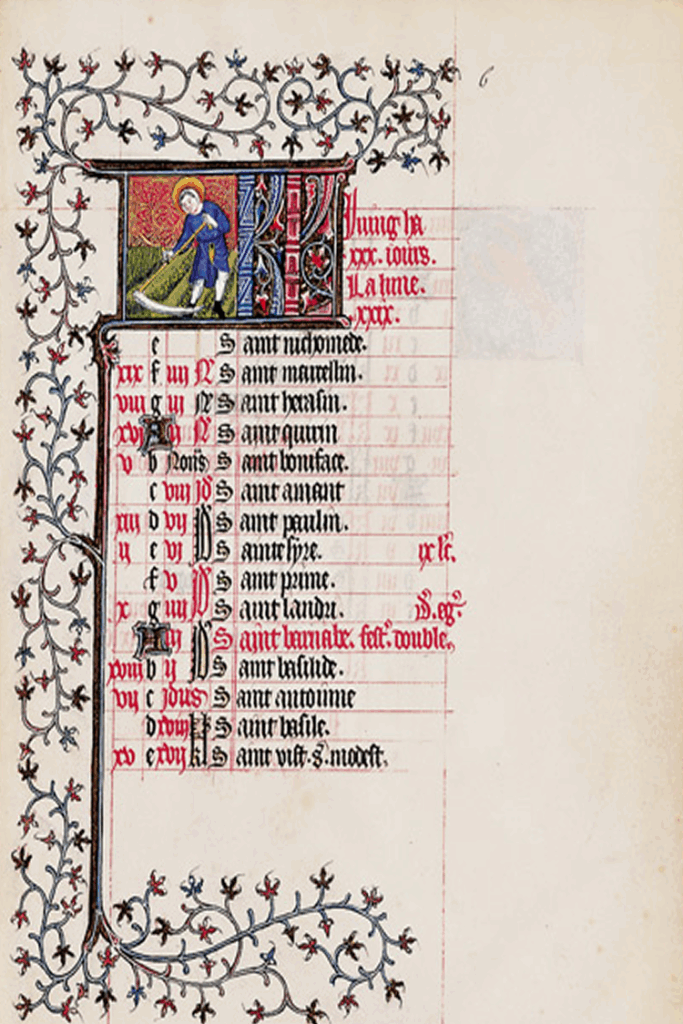 6
KL
Juing ha
xxx. iours.
La lune.
xxix.
e Saint nichomede.
xix f iiij N Saint marcellin.
viij g iij N Saint herasin.
xvj A ij N Saint quirin
v b Nonis Saint boniface.
c viij Id Saint amant
xiij d vij Id Saint paulin.
ij e vj Id Sainte syre. ix lc.
f v Id Saint prime.
x g iiij Id Saint landri.
A iij Id Saint barnabe. fest. double.
xviij b ij Id Saint basilide.
vij c Idus Saint antoinne
d xviij kl Saint basile.
xv e xvij kl Saint vist. S. modest.